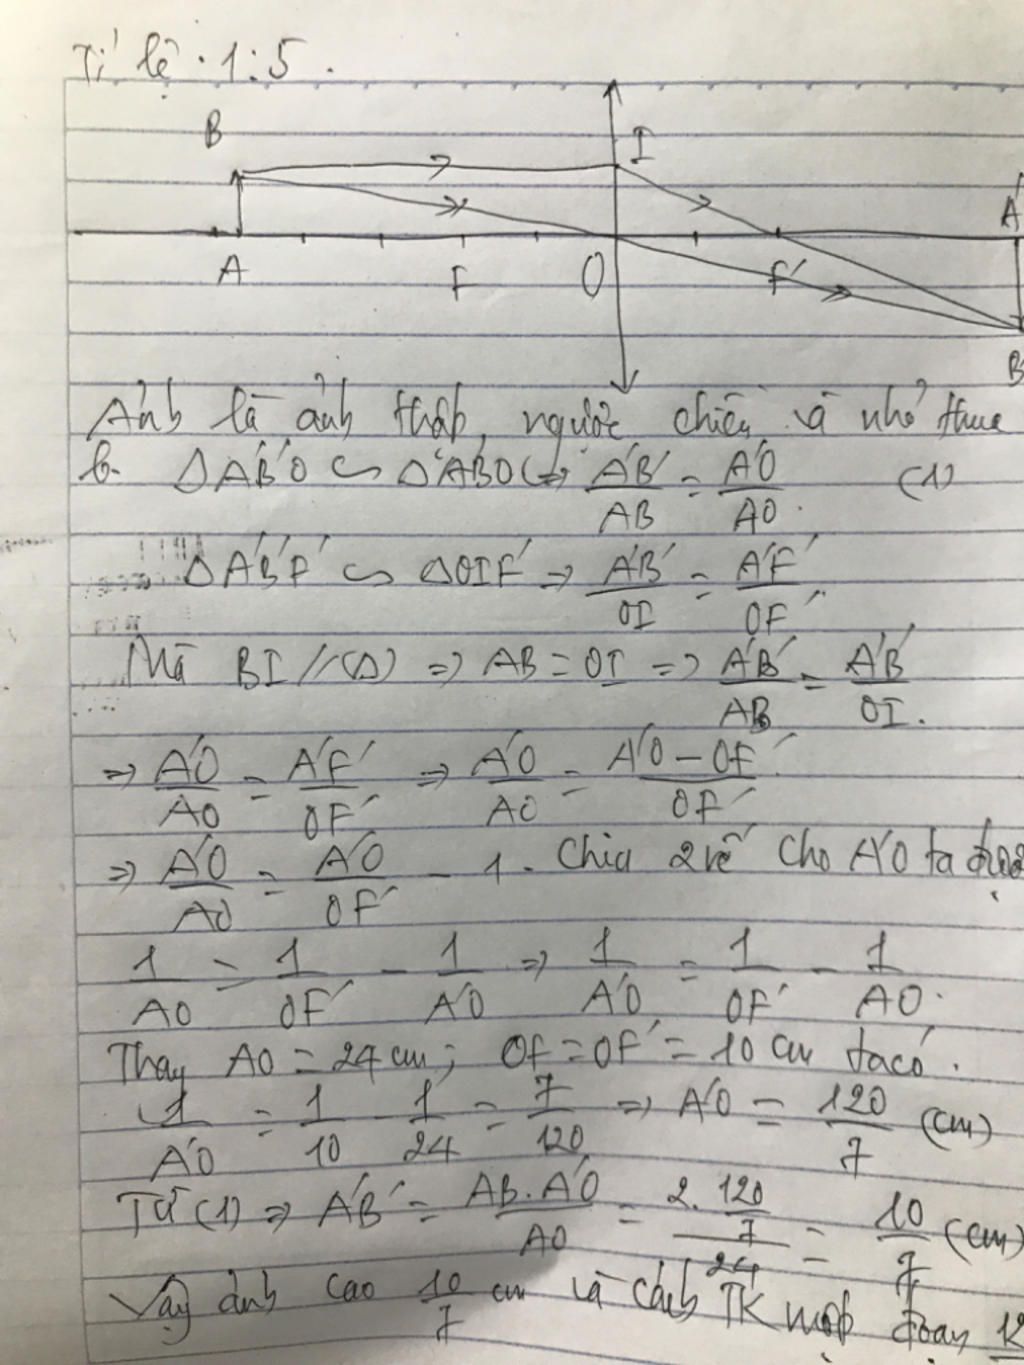 Tỉ lệ · 1:5 .
B I
A'
A F O F'
B
Ảnh là ảnh thật, ngược chiều và nhỏ
b. ΔA'B'O ∽ ΔABO (=> A'B'/AB = A'O/AO . (1)
ΔA'B'F' ∽ ΔOIF' => A'B'/OI = A'F'/OF'
Mà BI // (Δ) => AB = OI => A'B'/AB = A'B'/OI .
=> A'O/AO = A'F'/OF' => A'O/AO = A'O - OF'/OF'
=> A'O/AO = A'O/OF' - 1 . Chia 2 vế cho A'O ta được
1/AO = 1/OF' - 1/A'O => 1/A'O = 1/OF' - 1/AO .
Thay AO = 24 cm; OF = OF' = 10 cm ta có .
1/A'O = 1/10 - 1/24 = 7/120 => A'O = 120/7 (cm)
Từ (1) => A'B' = AB.A'O/AO = 2.120/7/24 = 10/7 (cm)
Vậy ảnh cao 10/7 cm và cách TK một đoạn 12